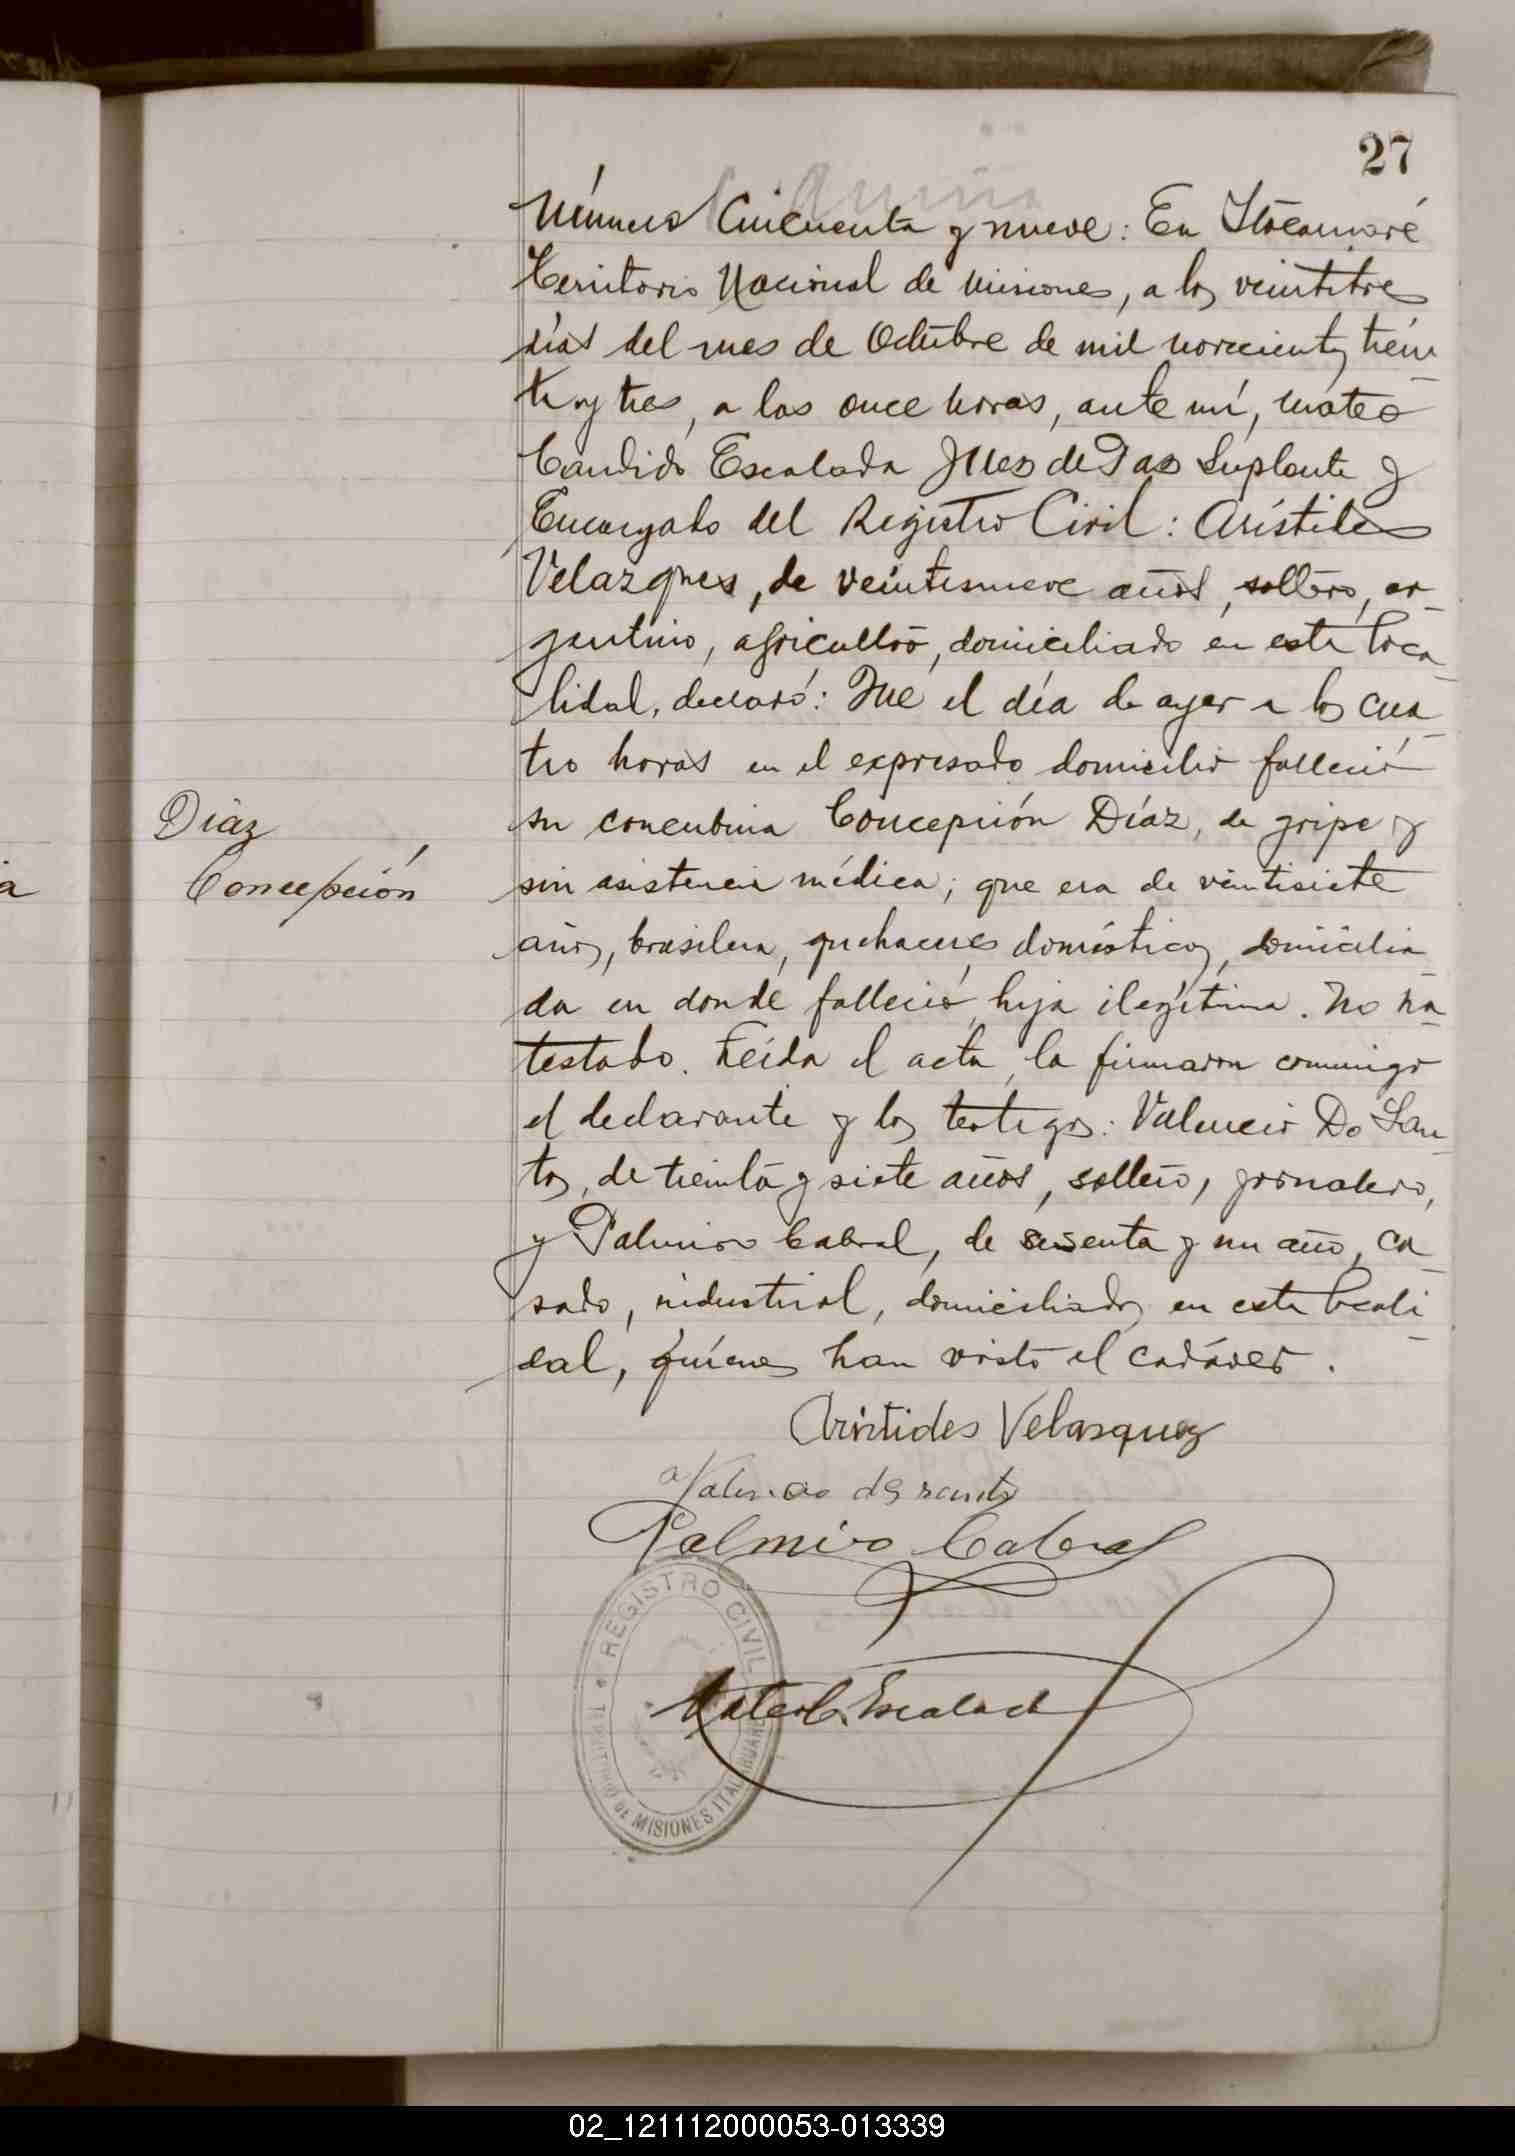 27
Número Cincuenta y nueve: En Itacaruaré
Territorio Nacional de Misiones, a los veintitres
días del mes de Octubre de mil novecientos trein
ta y tres, a las once horas, ante mí, Mateo
Candido Escalada Juez de Paz Suplente y
Encargado del Registro Civil: Arístides
Velazques, de veintinueve años, soltero, ar-
gentino, agricultor, domiciliado en esta loca-
lidad, declaró: Que el día de ayer a las cua-
tro horas en el expresado domicilio falleció
su concubina Concepción Díaz, de gripe y
sin asistencia médica; que era de veintisiete
años, brasilera, quehaceres domésticos, domicilia-
da en donde falleció, hija ilegítima. No ha-
testado. Leída el acta, la firmaron conmigo
el declarante y los testigos: Valencio Do San-
tos, de treinta y siete años, soltero, jornalero,
y Palmiro Cabral, de sesenta y un año, ca-
sado, industrial, domiciliados en esta locali-
dad, quiénes han visto el cadáver.
Díaz
Concepción
Aristides Velasquez
Valencio do santo
Palmiro Cabral
Mateo C. Escalada
REGISTRO CIVIL
TERRITORIO DE MISIONES ITACARUARÉ
02_121112000053-013339